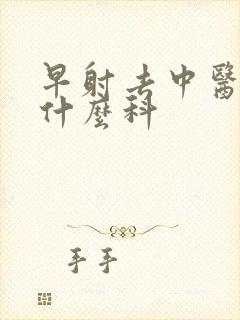 早射去中醫
什麼科
手手